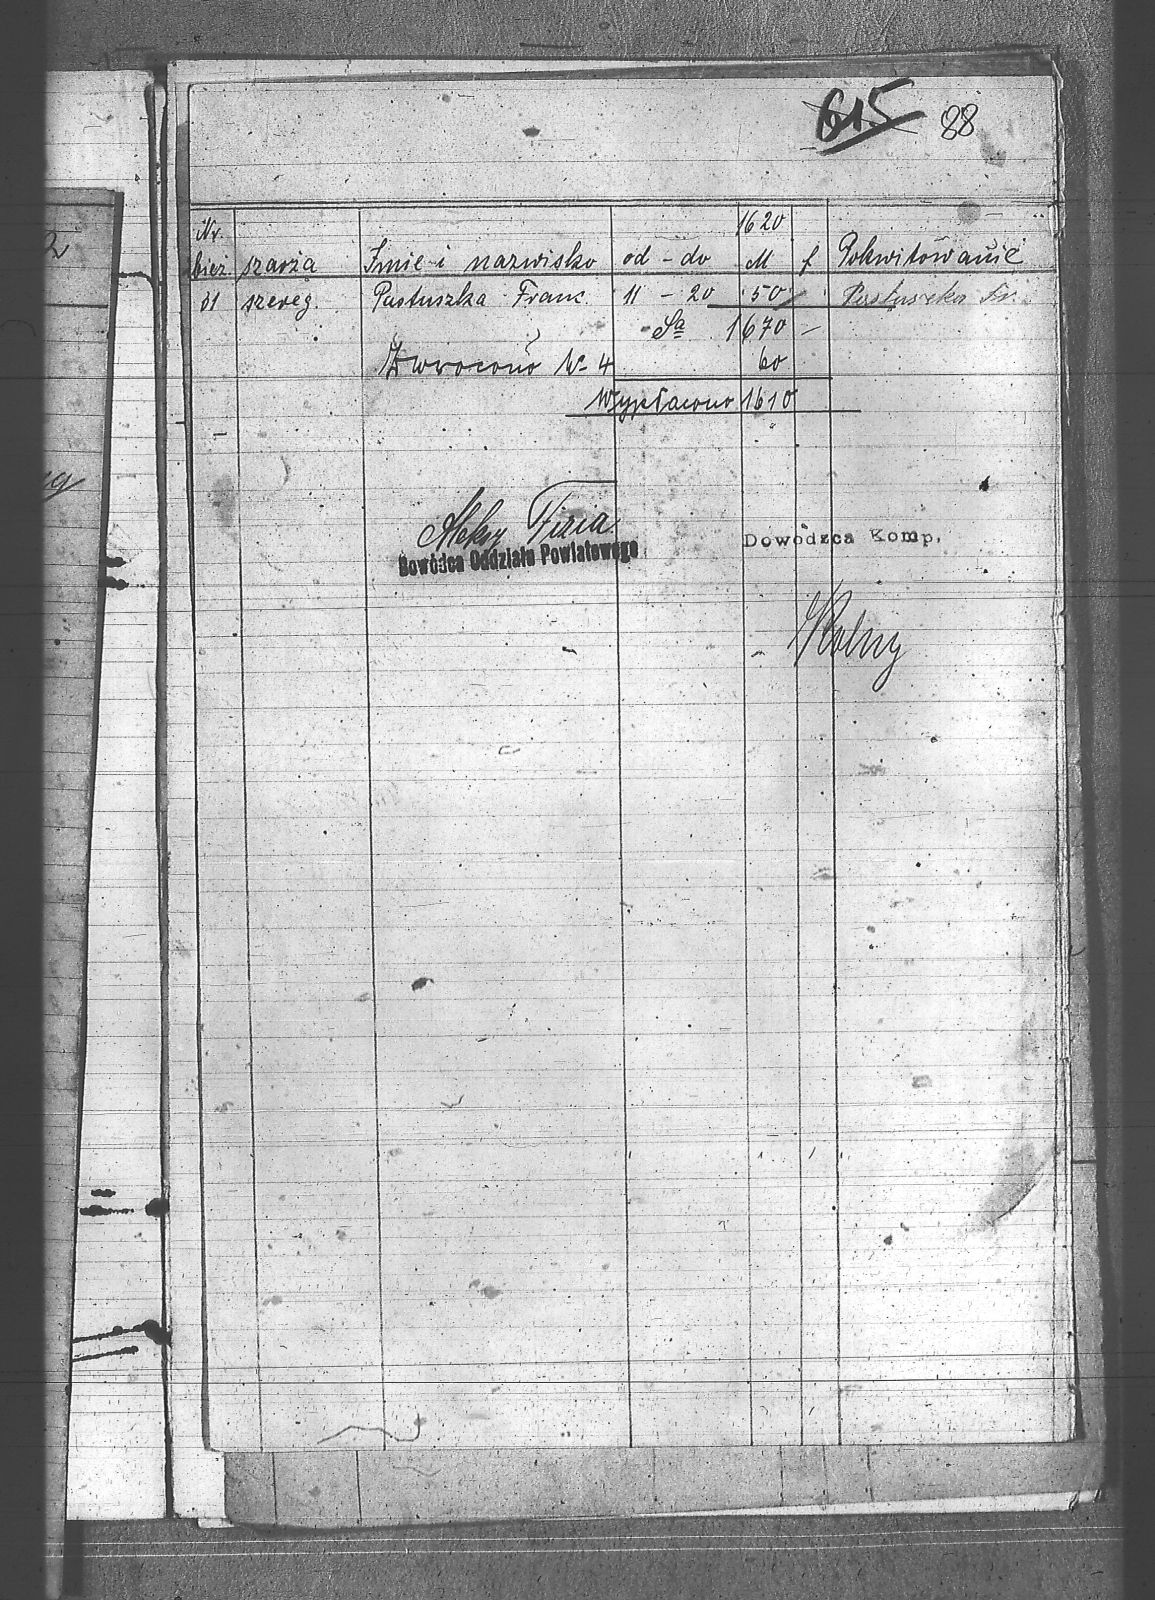 615 88
1620
Nr
bież szarża Imie i nazwisko od - do M f Pokwitowanie
31 szereg. Pastuszka Franc. 11 - 20 50 Pastuszka Fr.
Sa 1670 -
Zwrocono N- 4 60
Wypłacono 1610
Fizia
Dowódca Oddziału Powiatowego
Dowódzca Komp.
Wolny